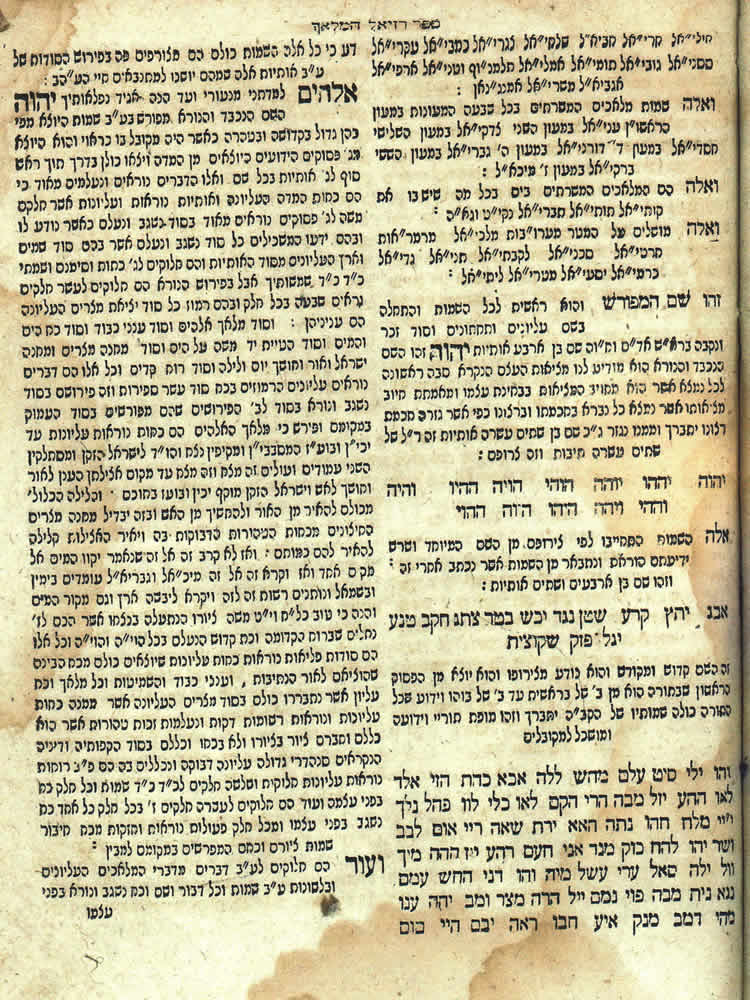 ספר רזיאל המלאך
חילי״אל חרי״אל חביא״ל שלתי״אל לגרי״אל כמבי״אל עקרי״אל
חסני״אל גובי״אל תומי״אל אמלי״אל חלמנ״וף וטני״אל ארפי״אל
אגביא״ל משרי״אל אמנג״נאן :
ואלה שמות מלאכים המשרתים בכל שבעה המעונות במעון
הראשו״ן עני״אל במעון השני לדקי״אל במעון השלישי
חסדי״אל במעון ד׳ דורני״אל במעון ה׳ גברי״אל במעון הששי
ברקי״אל במעון ז׳ מיכא״ל :
ואלה הם המלאכים המשרתים בים בכל מה שיש בו את
קותי״אל תותי״אל חברי״אל נקי״ט וגא״ה :
ואלה מושלים על המטר מערו״בות מלכי״אל מרמר״אות
פרטי״אל סכני״אל לקבתי״אל תני״אל גדי״אל
כרמי״אל יסעי״אל מטרי״אל ליתי״אל :
זהו שם המפורש והוא ראשית לכל השמות והתחלה
בשם עליונים ותחתונים וסוד זכר
ונקבה ברא״ש אד״ם וח״וה שם בן ארבע אותיות יהוה זהו השם
הנכבד והנורא הוא מודיע לנו מציאות העלם הנקרא סבה ראשונה
לכל נמצא אשר הוא מחויב המציאות בבחינת עצמו ומאמתת חיוב
מציאותו אשר נמצא כל נברא בחכמתו וברצונו כפי אשר גזרה חכמת
רצונו יתברך וממנו נגזר ג״כ שם בן שתים עשרה אותיות זה ר״ל של
שתים עשרה תיבות וזה צרופם :
יהוה יההו יוהה הוהי הויה ההיו והיה
וההי ויהה היהו היוה ההוי
אלה השמות המתחייבו לפי צירופם מן השם המיוחד ושרש
ידיעתם הוראת ונתבאר מן השמות אשר נכתב אחרי זה :
וזהו שם בן ארבעים ושתים אותיות :
אבג יתץ קרע שטן נגד יכש בטר צתג חקב טנע
יגל פזק שקוצית
זה השם קדוש ומקודש והוא נודע מצירופו והוא יוצא מן הפסוק
הראשון שבתורה הוא מן ב׳ של בראשית עד ב׳ של בוהו וידוע שכל
התורה כולה שמותיו של הקב״ה יתברך וזהו מופת תוריי וידועה
ומושכל למקובלים
והו ילי סיט עלם מהש ללה אכא כהת הזי אלד
לאו ההע יזל מבה הרי הקם לאו כלי לוו פהל נלך
ייי מלה חהו נתה האא ירת שאה ריי אום לכב
ושר יהו להח כוק מנד אני חעם רהע ייז ההה מיך
וול ילה סאל ערי עשל מיה והו דני החש עמם
ננא נית מבה פוי נמם ייל הרח מצר ומב יהה ענו
מחי דמב מנק איע חבו ראה יבם היי מום
דע כי כל אלה השמות כולם הם מצורפים פה בפירוש הסודות של
ע״ב אותיות אלה שמהם יושנו למתנבאים חיי הע״הב :
אלהים למדתני מנעורי ועד הנה אגיד נפלאותיך יהוה
השם הנכבד והנורא מפורש בע״ב שמות היוצא מפי
כהן גדול בקדושה ובטהרה כאשר היה מקובל בו כראוי והוא היוצא
מג׳ פסוקים הידועים היוצאים מן המדה ויצאו כולן בדרך תוך ראש
סוף לג׳ אותיות בכל שם ואלו הדברים נוראים ונעלמים מאוד כי
הם כחות המדה העליונה ואותיות נוראות ועליונות אשר חלקם
משה לג׳ פסוקים נוראים מאוד בסוד נשגב ונעלם כאשר נודע לו
ובהם ידעו המשכילים כל סוד נשגב ונעלם אשר בהם סוד שמים
וארץ העליונים מסוד האותיות והם חלוקים לג׳ כחות וסימנם ושמתי
כ״ד כ״ד שמשותיך אבל בפירוש הנורא הם חלוקים לעשר חלקים
נראים שבעה בכל חלק ובהם רמוז כל סוד יציאת מצרים העליונה
הם עניניהן : וסוד מלאך אלהים וסוד ענני כבוד וסוד כח הים
והמים וסוד הטיית יד משה על הים וסוד מחנה מצרים ומחנה
ישראל ואור וחושך יום ולילה וסוד רוח קדים וכל אלו הם דברים
נוראים עליונים הרמוזים בכח סוד עשר ספירות וזה פירושם בסוד
נשגב ונורא בסוד לב׳ הפירושים שהם מפורשים בסוד העמוק
במקומם ופירש כי מלאך האלהים הם כחות נוראות עליונות עד
יכי״ן ובוע״ז המסבבי״ן ומקיפין נצח והו״ד לישראל הזקן ומסתלקין
השני עמודים ועולים זה מצח וזה מצח עד מקום אצילתן הענן לאור
וחושך לאש וישראל הזקן מוקף יכין ובועז בתוכם והלילה הכלול׳
מכולם להאיר מן האור ולהחשיך מן האש ובזה יבדיל מחנה מצרים
החיצונים מכחות הטהורות הדבוקות בה ויאיר האצילות הלילה
להאיר להם כמותם : ואז לא קרב זה אל זה שנאמר יקוו המים אל
מקום אחד ואז וקרא זה אל זה מיכ״אל וגבריא״ל עומדים בימין
ובשמאל ונותנים רשות זה לזה ויקרא ליבשה ארץ וגם מקור המים
והנה כי טוב כל״ח וי״ט משה ציורו הנתעלה בנצחו אשר הכם לז׳
נחלים שברוח הקדומה וכח קדוש הנעלם בכל הוי״ה והוי״ה וכל אלו
הם סודות פליאות נוראות כחות עליונות שיוצאים כולם מכח הבינה
שהוציאם לאור הנתיבות , וענני כבוד והשמיטות וכל מלאך וכח
עליון אשר נתבררו כולם בסוד מצרים העליונה אשר ממנה כחות
עליונות ונוראות רשומות דקות ונעלמות זכות טהורות אשר הוא
כללם וחברם ציור בציורו ולא בכחו וכללם בסוד הקפותיה ודיניה
הנקראים סנהדרי גדולה עליונה דבוקה ונכללים בה הם פ״ג רוחות
נוראות עליונות חלוקות ושלשה חלקים לכ״ד כ״ד שמות וכל חלק כח
בפני עצמה ועוד הם חלוקים לעברה חלקים ז׳ בכל חלק כל אחד כח
נשגב בפני עצמו ומכל חלק פעולות נוראות וחזקות מכח חיבור
שמות ציורם וכחם המפרשים במקומם למבין :
ועוד הם חלוקים לע״ב דברים מדברי המלאכים העליונים
ובלשונות ע״ב שמות וכל דבור ושם וכח נשגב ונורא בפני
עצמו